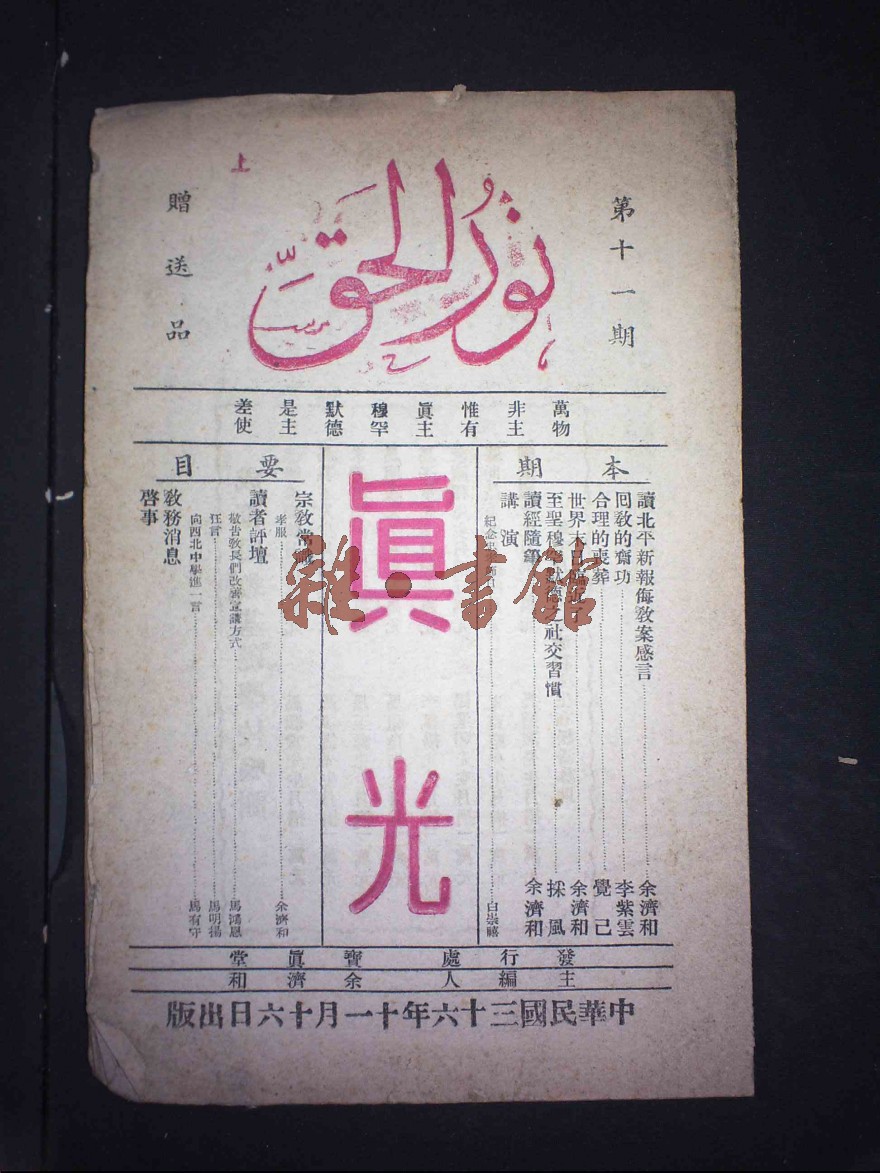 上
نور الحق
第十一期
贈送品
萬物非主惟有眞主穆罕默德是主差使
本期
要目
讀北平新報侮敎案感言 余濟和
囘敎的齋功 李紫雲
合理的喪葬 覺己
世界末日 余濟和
至聖穆 德之社交習慣 採風
讀經隨筆 余濟和
講演
紀念 白崇禧
眞光
宗敎常識
孝服 余濟和
讀者評壇
敬告敎長們改善宣講方式 馬鴻恩
狂言 馬明揚
向西北中學進一言 馬有守
敎務消息
啓事
發行處寶眞堂
主編人余濟和
中華民國三十六年十一月十六日出版
雜·書館